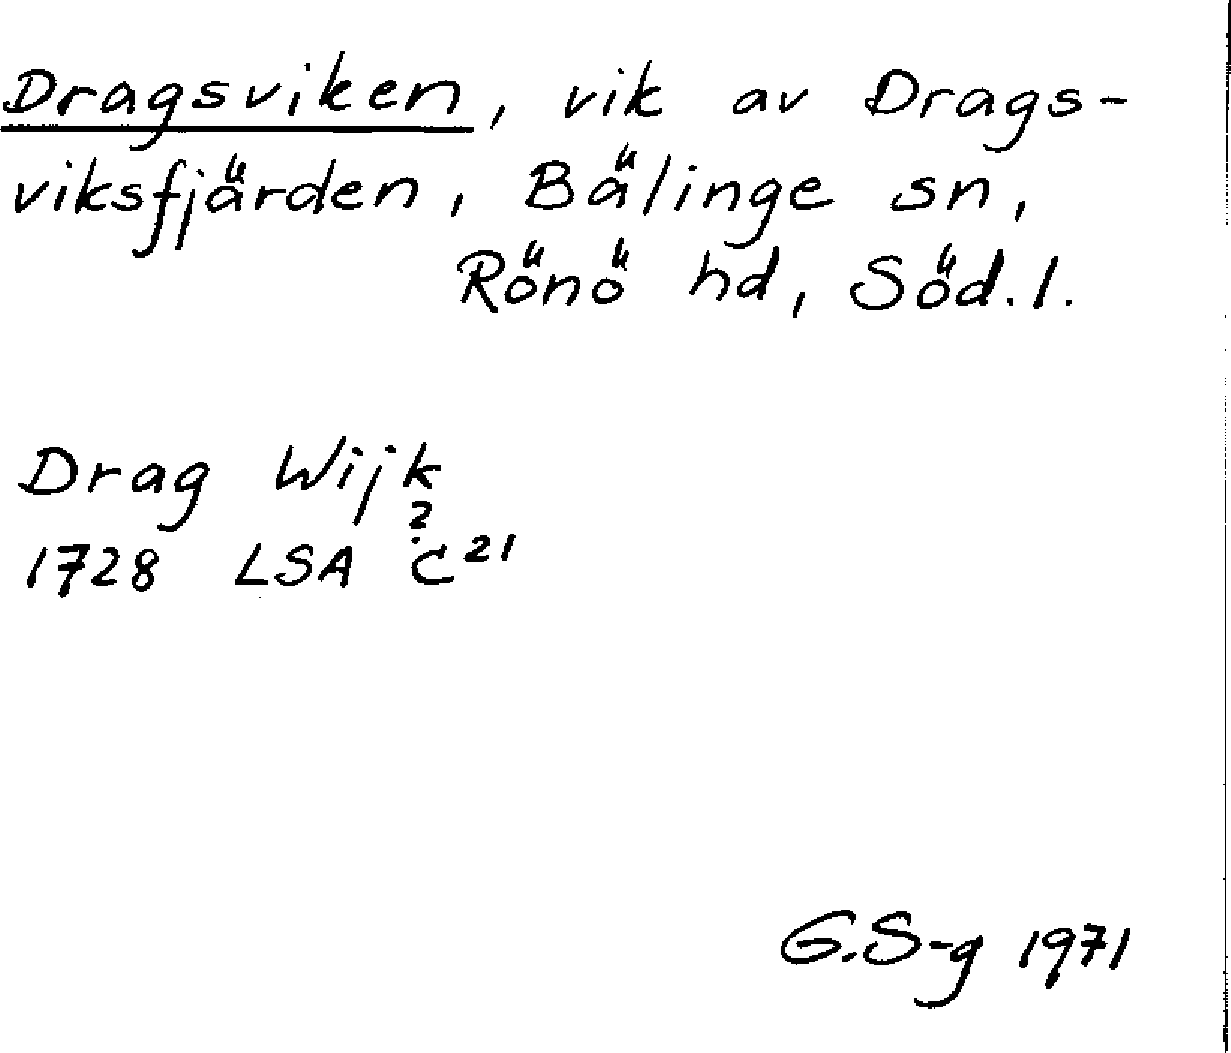 Dragsviken, vik av Drags-
viksfjärden, Bälinge sn,
Rönö hd, Söd.l.
Drag Wijk
?
1728 LSA C21
G.S-g 1971